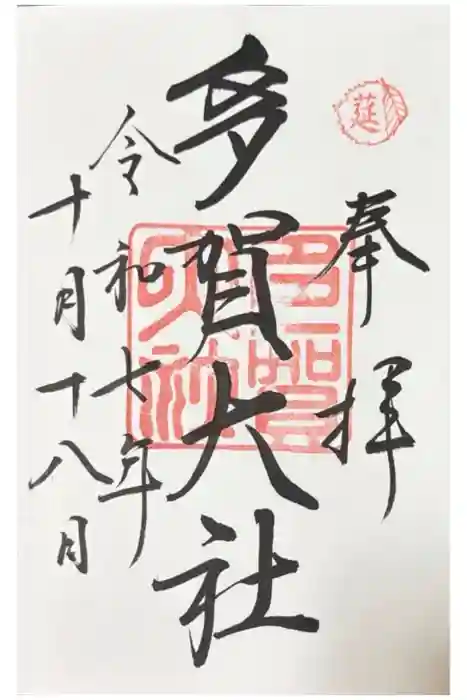 莚
奉拝
多賀大社
多賀大社
令和七年
十月十八日